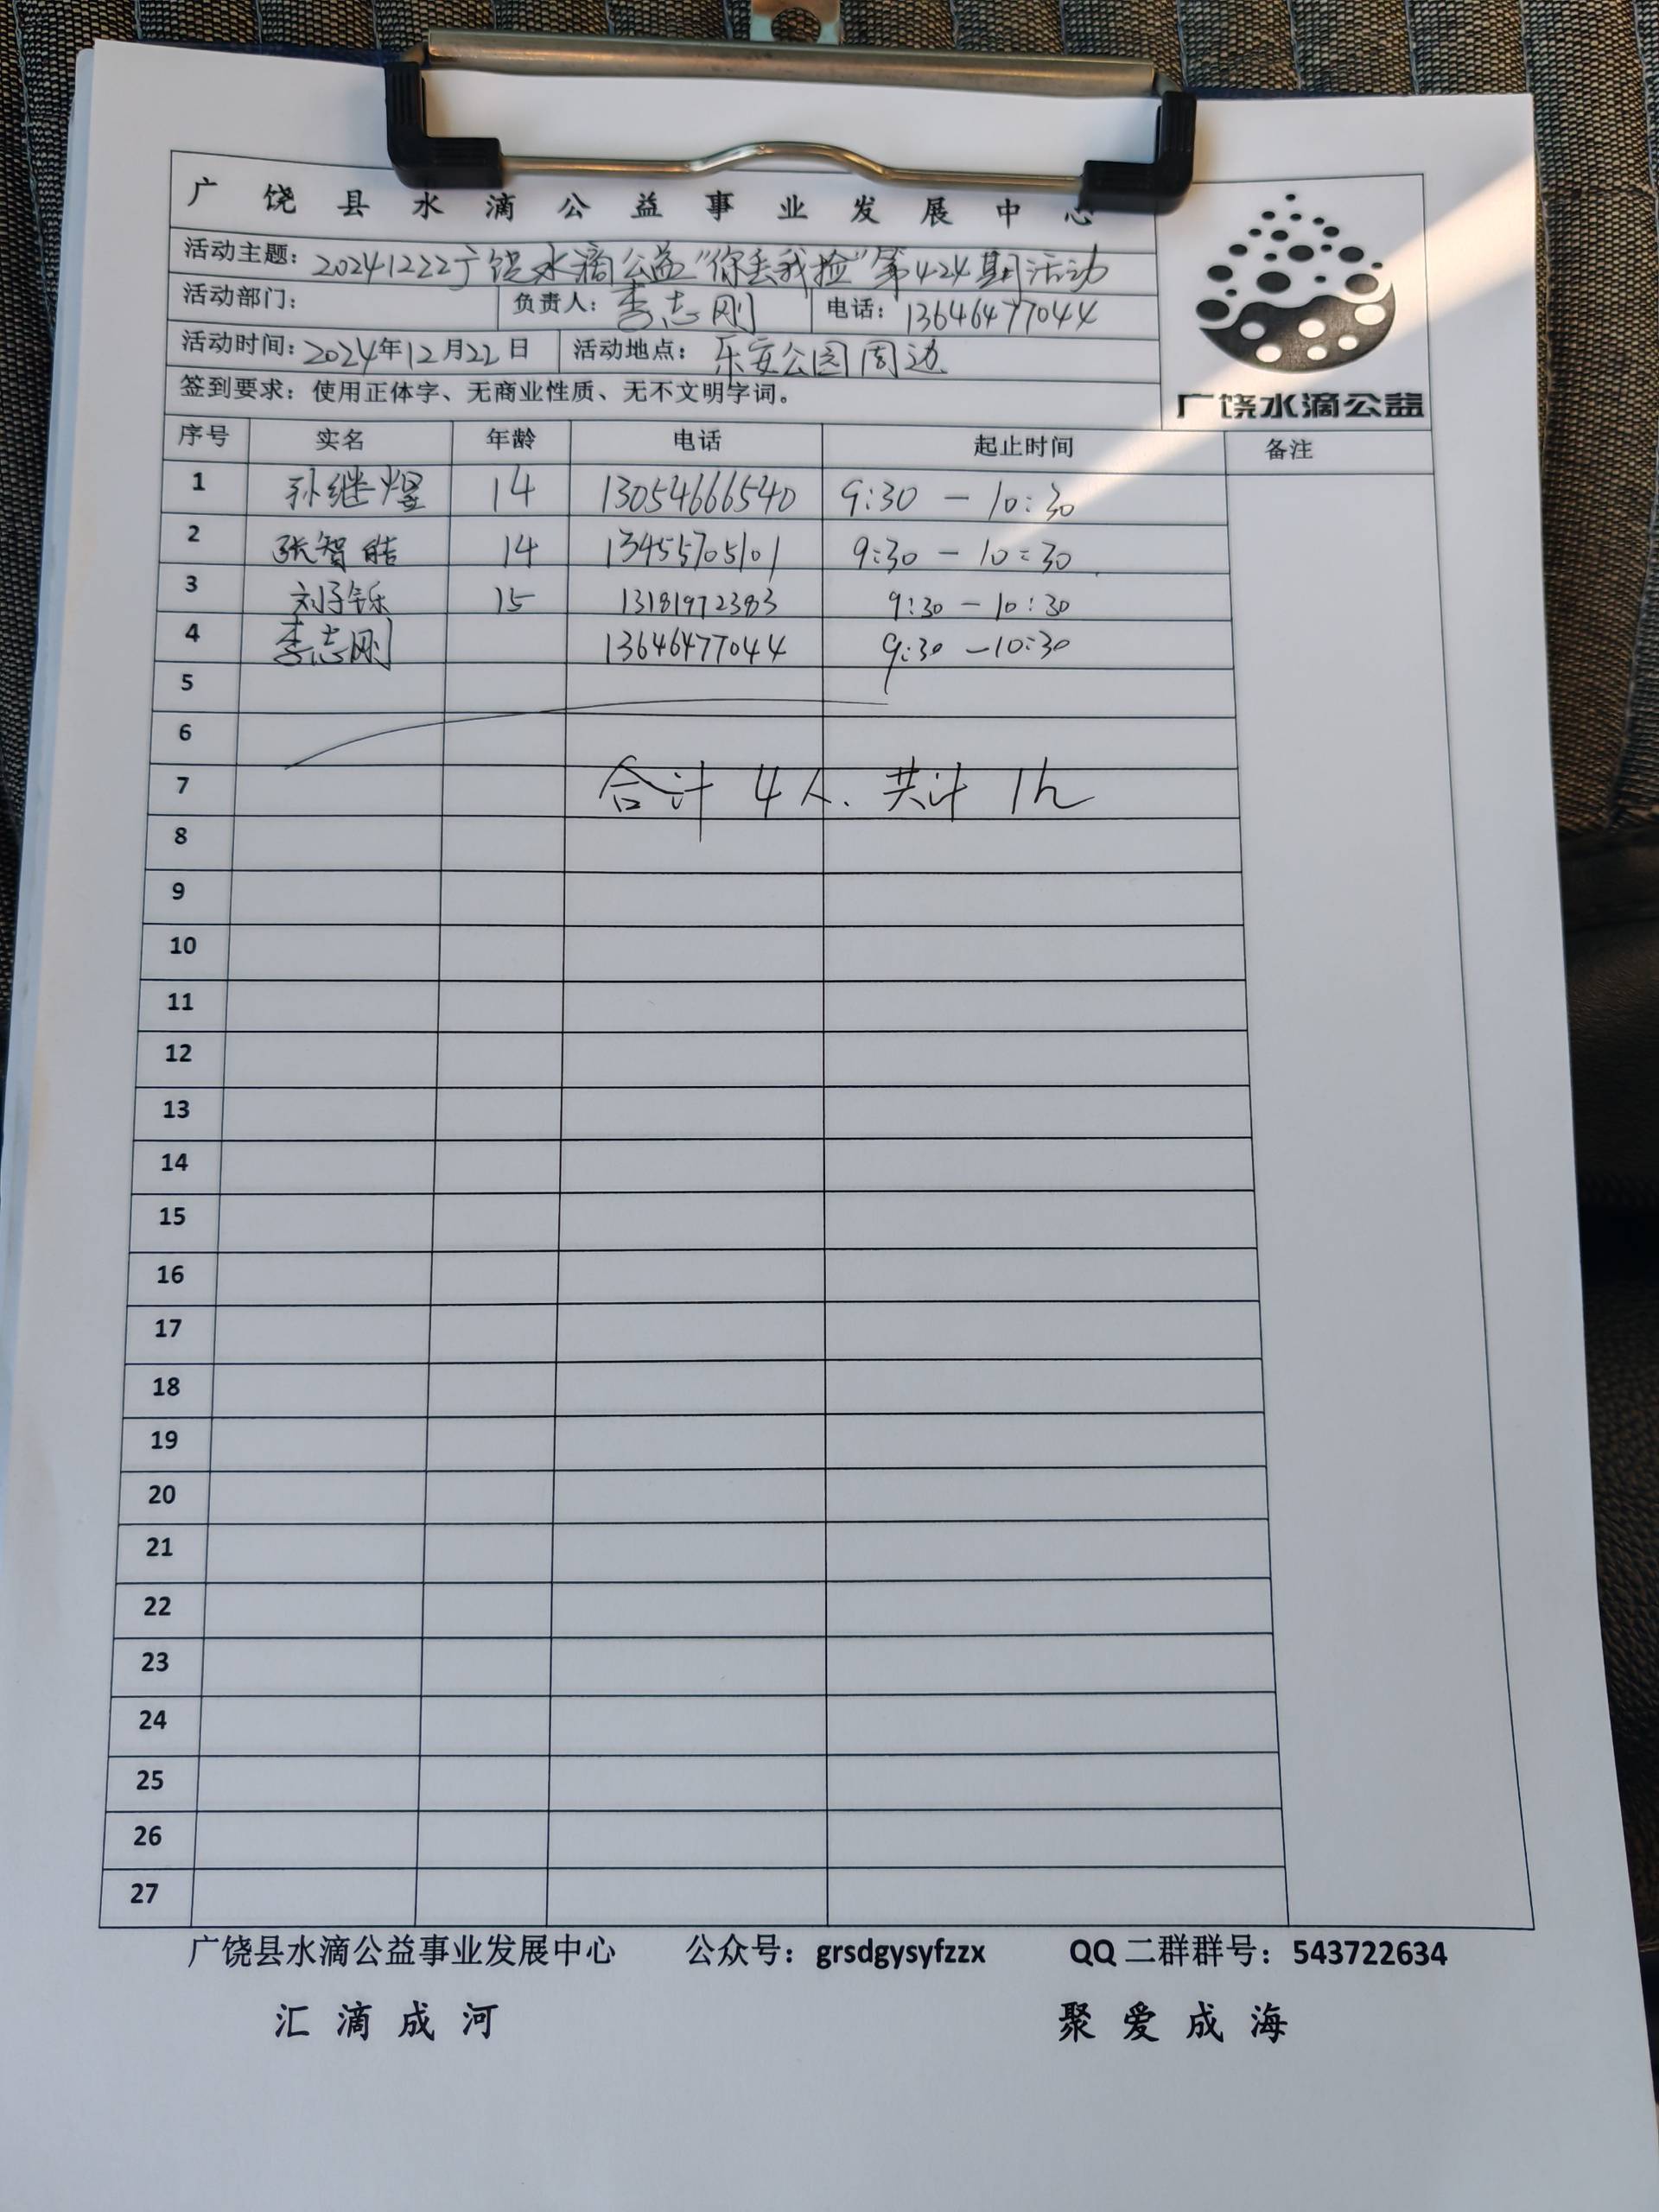 广饶县水滴公益事业发展中心
活动主题：20241222广饶水滴公益“你丢我捡”第424期活动
活动部门： 负责人：李志刚 电话：13646477044
活动时间：2024年12月22日 活动地点：乐安公园周边
签到要求：使用正体字、无商业性质、无不文明字词。
广饶水滴公益
序号 实名 年龄 电话 起止时间 备注
1 孙继煜 14 13054666540 9:30 — 10:30
2 张智皓 14 13455705101 9:30 — 10:30
3 刘子铄 15 13181972383 9:30 — 10:30
4 李志刚 13646477044 9:30 — 10:30
5
6
7 合计 4人、共计 1h
8
9
10
11
12
13
14
15
16
17
18
19
20
21
22
23
24
25
26
27
广饶县水滴公益事业发展中心 公众号：grsdgysyfzzx QQ二群群号：543722634
汇滴成河 聚爱成海